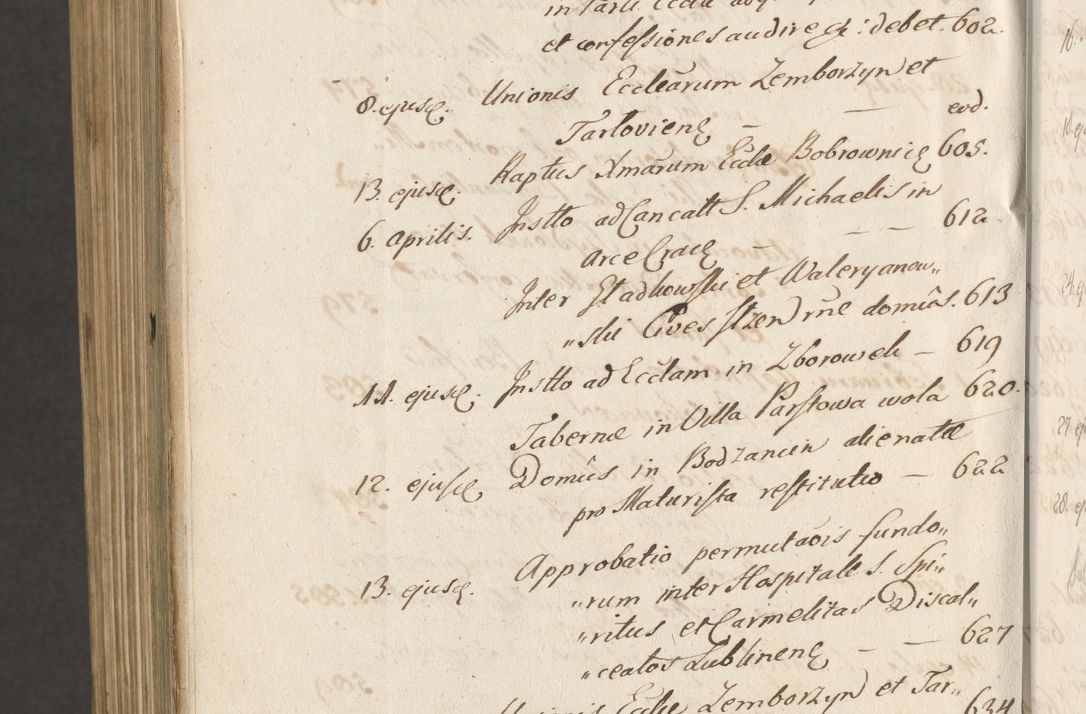 et confessiones audire &: debet. 602.
8. ejusq. Unionis Eccleārum Zemborzyn et
Tarlovienẽ — — eod.
13. ejusq. Raptus Xmarum Eccłæ Bobrownicẽ 605.
6. Aprilis. Instto ad Cancalt S. Michaelis in
Arce Cracẽ — — — 612.
Inter Stadkowski et Waleryanow„
„ski Cives Rzen rñe domûs. 613
11. ejusq. Instto ad Ecclam in Zborowek — 619
Tabernæ in Villa Parszowa wola 620.
12. ejusq. Domûs in Bodzancin alienatæ
pro Maturista restitutio — 622
13. ejusq. Approbatio permutaōis fundo„
„rum inter Hospitale S. Spi„
„ritus et Carmelitas Discal„
„ceatos Lublinenẽ — — 627
Unionis Eccłæ Zemborzyn et Tar„ 634